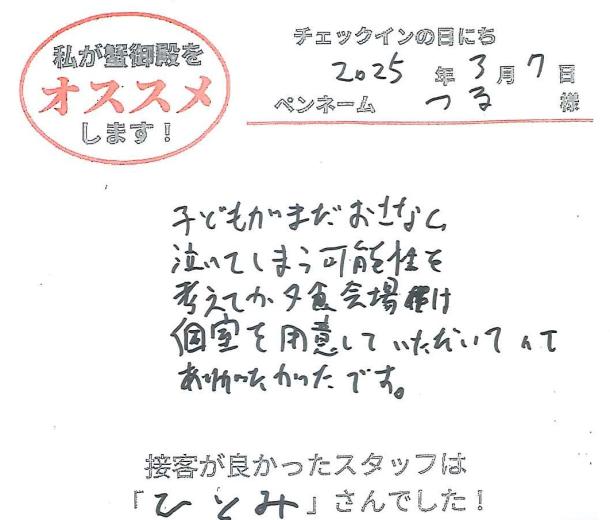 私が蟹御殿を
オススメ
します!
チェックインの日にち
2025年3月7日
ペンネーム つる 様
子どもがまだおさなく、
泣いてしまう可能性を
考えてか夕食会場は
個室を用意していただいていて
ありがたかったです。
接客が良かったスタッフは
「ひとみ」さんでした!